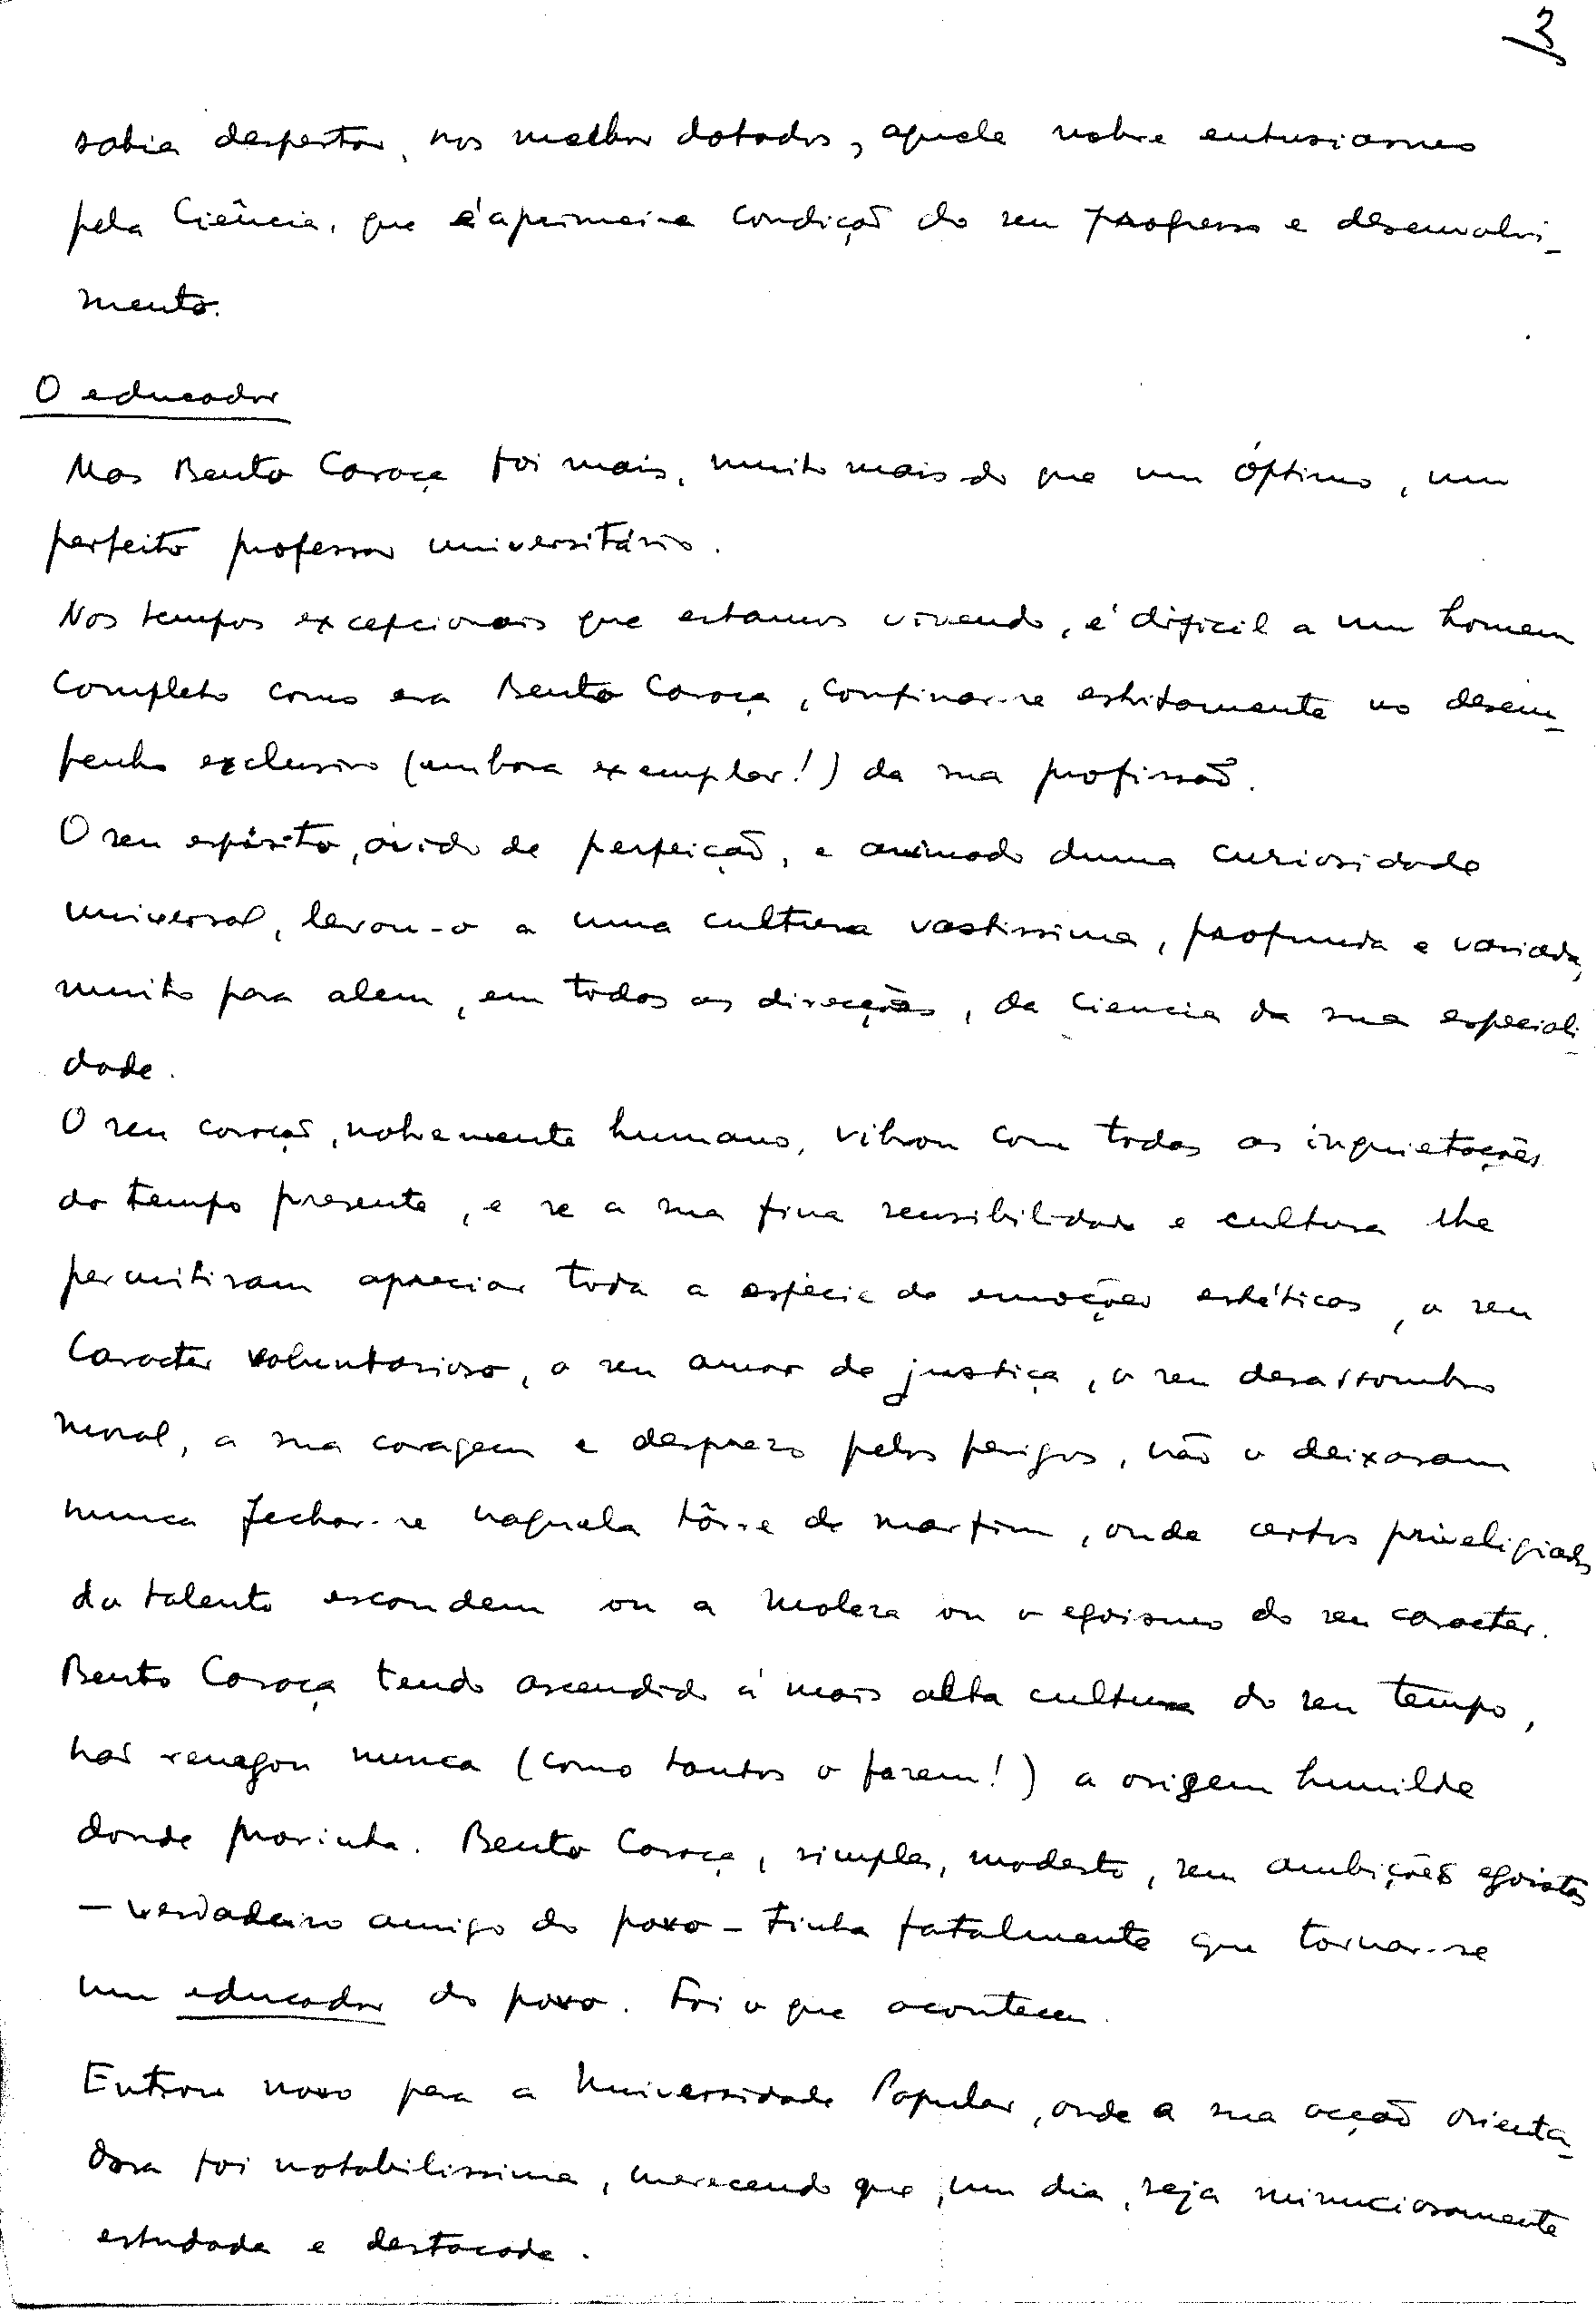 3
sabia despertar, nos melhor dotados, aquele nobre entusiasmo
pela Ciência, que é a primeira condição do seu progresso e desenvolvi-
mento.
O educador
Mas Bento Caraça foi mais, muito mais do que um óptimo, um
perfeito professor universitário.
Nos tempos excepcionais que estamos vivendo, é dificil a um homem
completo como era Bento Caraça, confinar-se estritamente no desem-
penho exclusivo (embora exemplar!) da sua profissão.
O seu espírito, ávido de perfeição, e animado duma curiosidade
universal, levou-o a uma cultura vastissima, profunda e variada,
muito para alem, em todas as direcções, da ciencia da sua especiali-
dade.
O seu coração, nobremente humano, vibrou com todas as inquietações
do tempo presente, e se a sua fina sensibilidade e cultura lhe
permitiram apreciar toda a espécie de emoções estéticas, o seu
caracter voluntarioso, o seu amor da justiça, o seu desassombro
moral, a sua coragem e desprezo pelos perigos, não o deixaram
nunca fechar-se naquela tôrre de marfim, onde certos priveligiados
do talento escondem ou a moleza ou o egoismo do seu caracter.
Bento Caraça tendo ascendido á mais alta cultura do seu tempo,
não renegou nunca (como tantos o fazem!) a origem humilde
donde provinha. Bento Caraça, simples, modesto, sem ambições egoistas
- verdadeiro amigo do povo - tinha fatalmente que tornar-se
um educador do povo. Foi o que aconteceu.
Entrou novo para a Universidade Popular, onde a sua acção orienta-
dora foi notabilissima, merecendo que, um dia, seja minuciosamente
estudada e destacada.